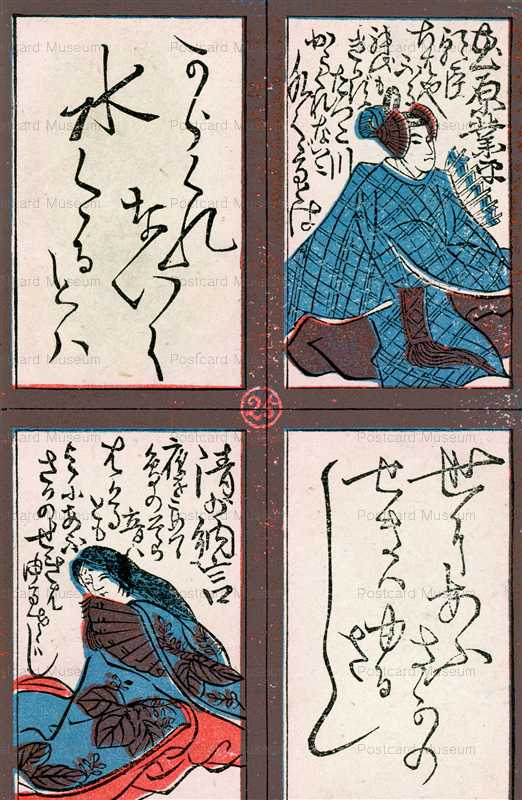 在原業平
朝臣
ちはや
ふる
神代も
きかず
たつた川
からくれないに
水くくるとは
からくれ
ないに
水くゝるとハ
25
世にあふ
さかの
せきハゆる
さし
清少納言
夜をこめて
鳥のそら
音ハ
はかる
とも
よにあふ
さかのせきは
ゆるさじ
Postcard Museum